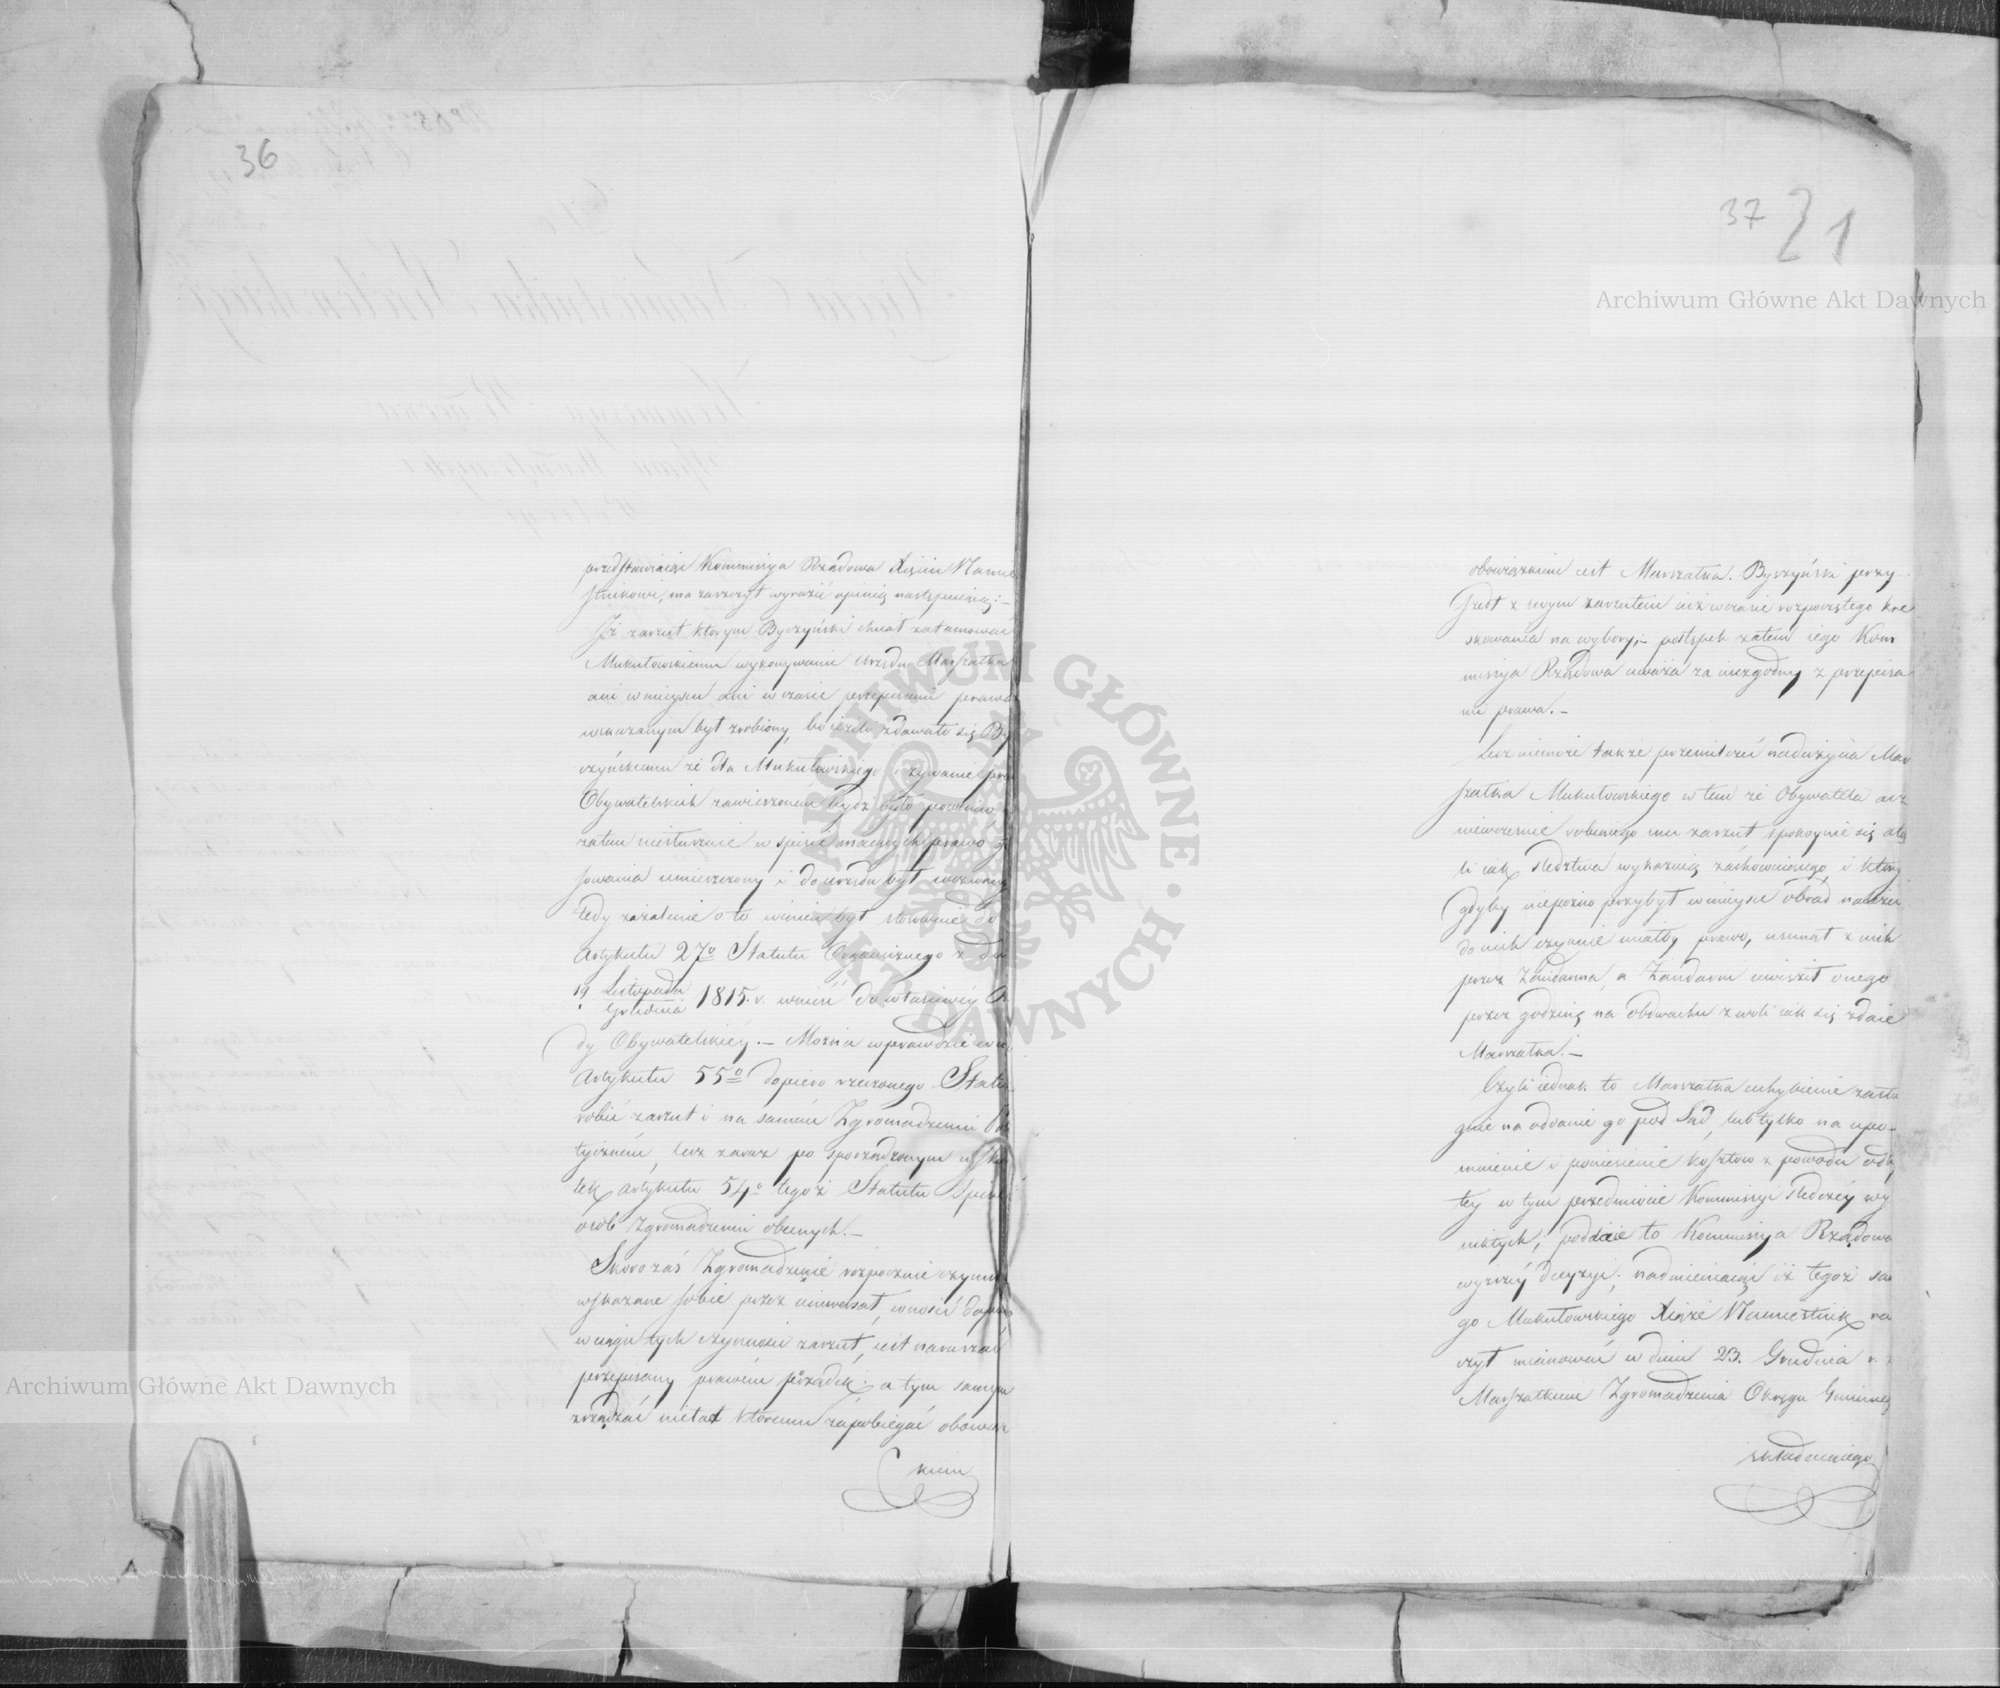 36
przedstawiaiąc Kommissya Rządowa Xięciu Namie
stnikowi, ma zaszczyt wyrazić opinią następuiącą: —
Iż zarzut którym Byczyński chciał zatamować
Mukułowskiemu wykonywanie Urzędu Marszałka
ani w mieyscu ani w czasie przepisami prawa
wskazanym był zrobiony, bo ieżeli zdawało się By
czyńskiemu że dla Mukułowskiego używanie praw
Obywatelskich zawieszonem bydź było powinno,
zatem niesłusznie w spisie maiących prawo gło
sowania umieszczony i do urzędu był wezwany
tedy zażalenie o to winien był stosownie do
Artykułu 27º Statutu Organicznego z dn
19 Listopada
Grudnia 1815. r. wnieść do właściwey Ra
dy Obywatelskiey. — Można wprawdzie
Artykułu 55º dopiero rzeczonego Statu
robić zarzut i na samém Zgromadzeniu Poli
tyczném, lecz zaraz po sporządzonym w sku
tek Artykułu 54º tegoż Statutu spisie
osób Zgromadzeniu obecnych. —
Skoro zaś Zgromadzenie rozpocznie czynno
wskazane sobie przez uniwersał, wnosić dopiero
w ciągu tych czynności zarzut, iest naruszać
przepisany prawem porządek; a tym samym
zrządzać nieład któremu zapobiegać obowiąz
kiem
37 21
Archiwum Główne Akt Dawnych
obowiązkiem iest Marszałka. Byczyński przy
szedł z swym zarzutem iuż w czasie rozpoczętego kre
skowania na wybory, — postępek zatem iego Kom
missya Rządowa uważa za niezgodny z przepisa
mi prawa. —
Lecz niemoże także przemilczeć nadużycia Mar
szałka Mukułowskiego w tem że Obywatela acz
niewcześnie robiącego mu zarzut spokoynie się
li iak śledztwa wykazuią zachowuiącego, i który
gdyby niepóźno przybył w mieysce obrad
do nich czynnie miałby prawo, usunął z nich
przez Żandarma, a Żandarm uwięził onego
przez godzinę na odwachu z woli iak się zdaie
Marszałka. —
Czyli iednak to Marszałka uchybienie zasłu
guie na oddanie go pod Sąd, lub tylko na upo-
mnienie i poniesienie kosztów z powodu odby
tey w tym przedmiocie Kommissyi śledczéy wy
nikłych, poddaie to Kommissya Rządowa
wyższéy decyzyi; nadmieniaiąc iż tegoż sa
go Mukułowskiego Xiąże Namiestnik ra
czył mianować w dniu 23. Grudnia r.
Marszałkiem Zgromadzenia Okręgu Gminneg
składaiącego
Archiwum Główne Akt Dawnych
ARCHIWUM GŁÓWNE AKT DAWNYCH